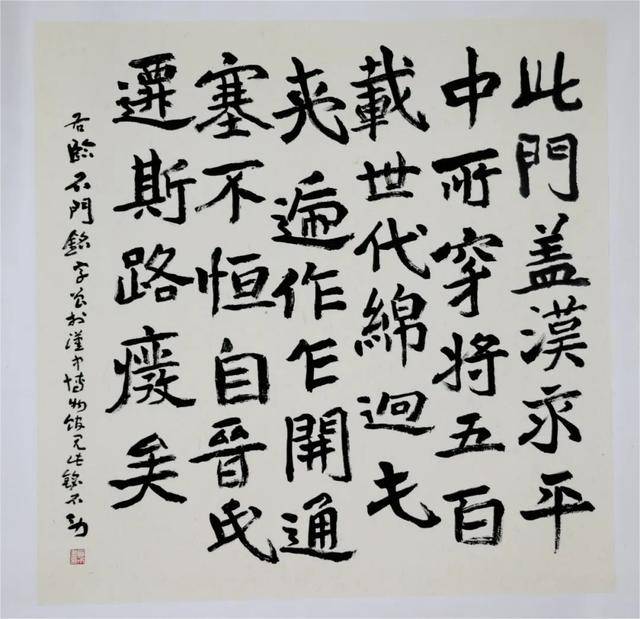 此門盖漢永平
中所穿将五百
載世代綿迥屯
夷遍作乍開通
塞不恒自晉氏
遷斯路癈矣
右臨石門銘字曾於漢中博物館見此銘石